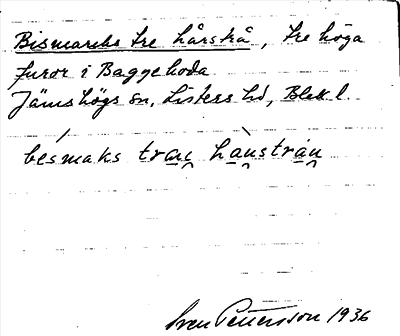 Bismarcks tre hårstrå, tre höga
furor i Baggeboda
Jämshögs sn, Listers hd, Blek l.
bésmaks tra̯i̯ hàu̯stráu̯
Sven Pettersson 1936